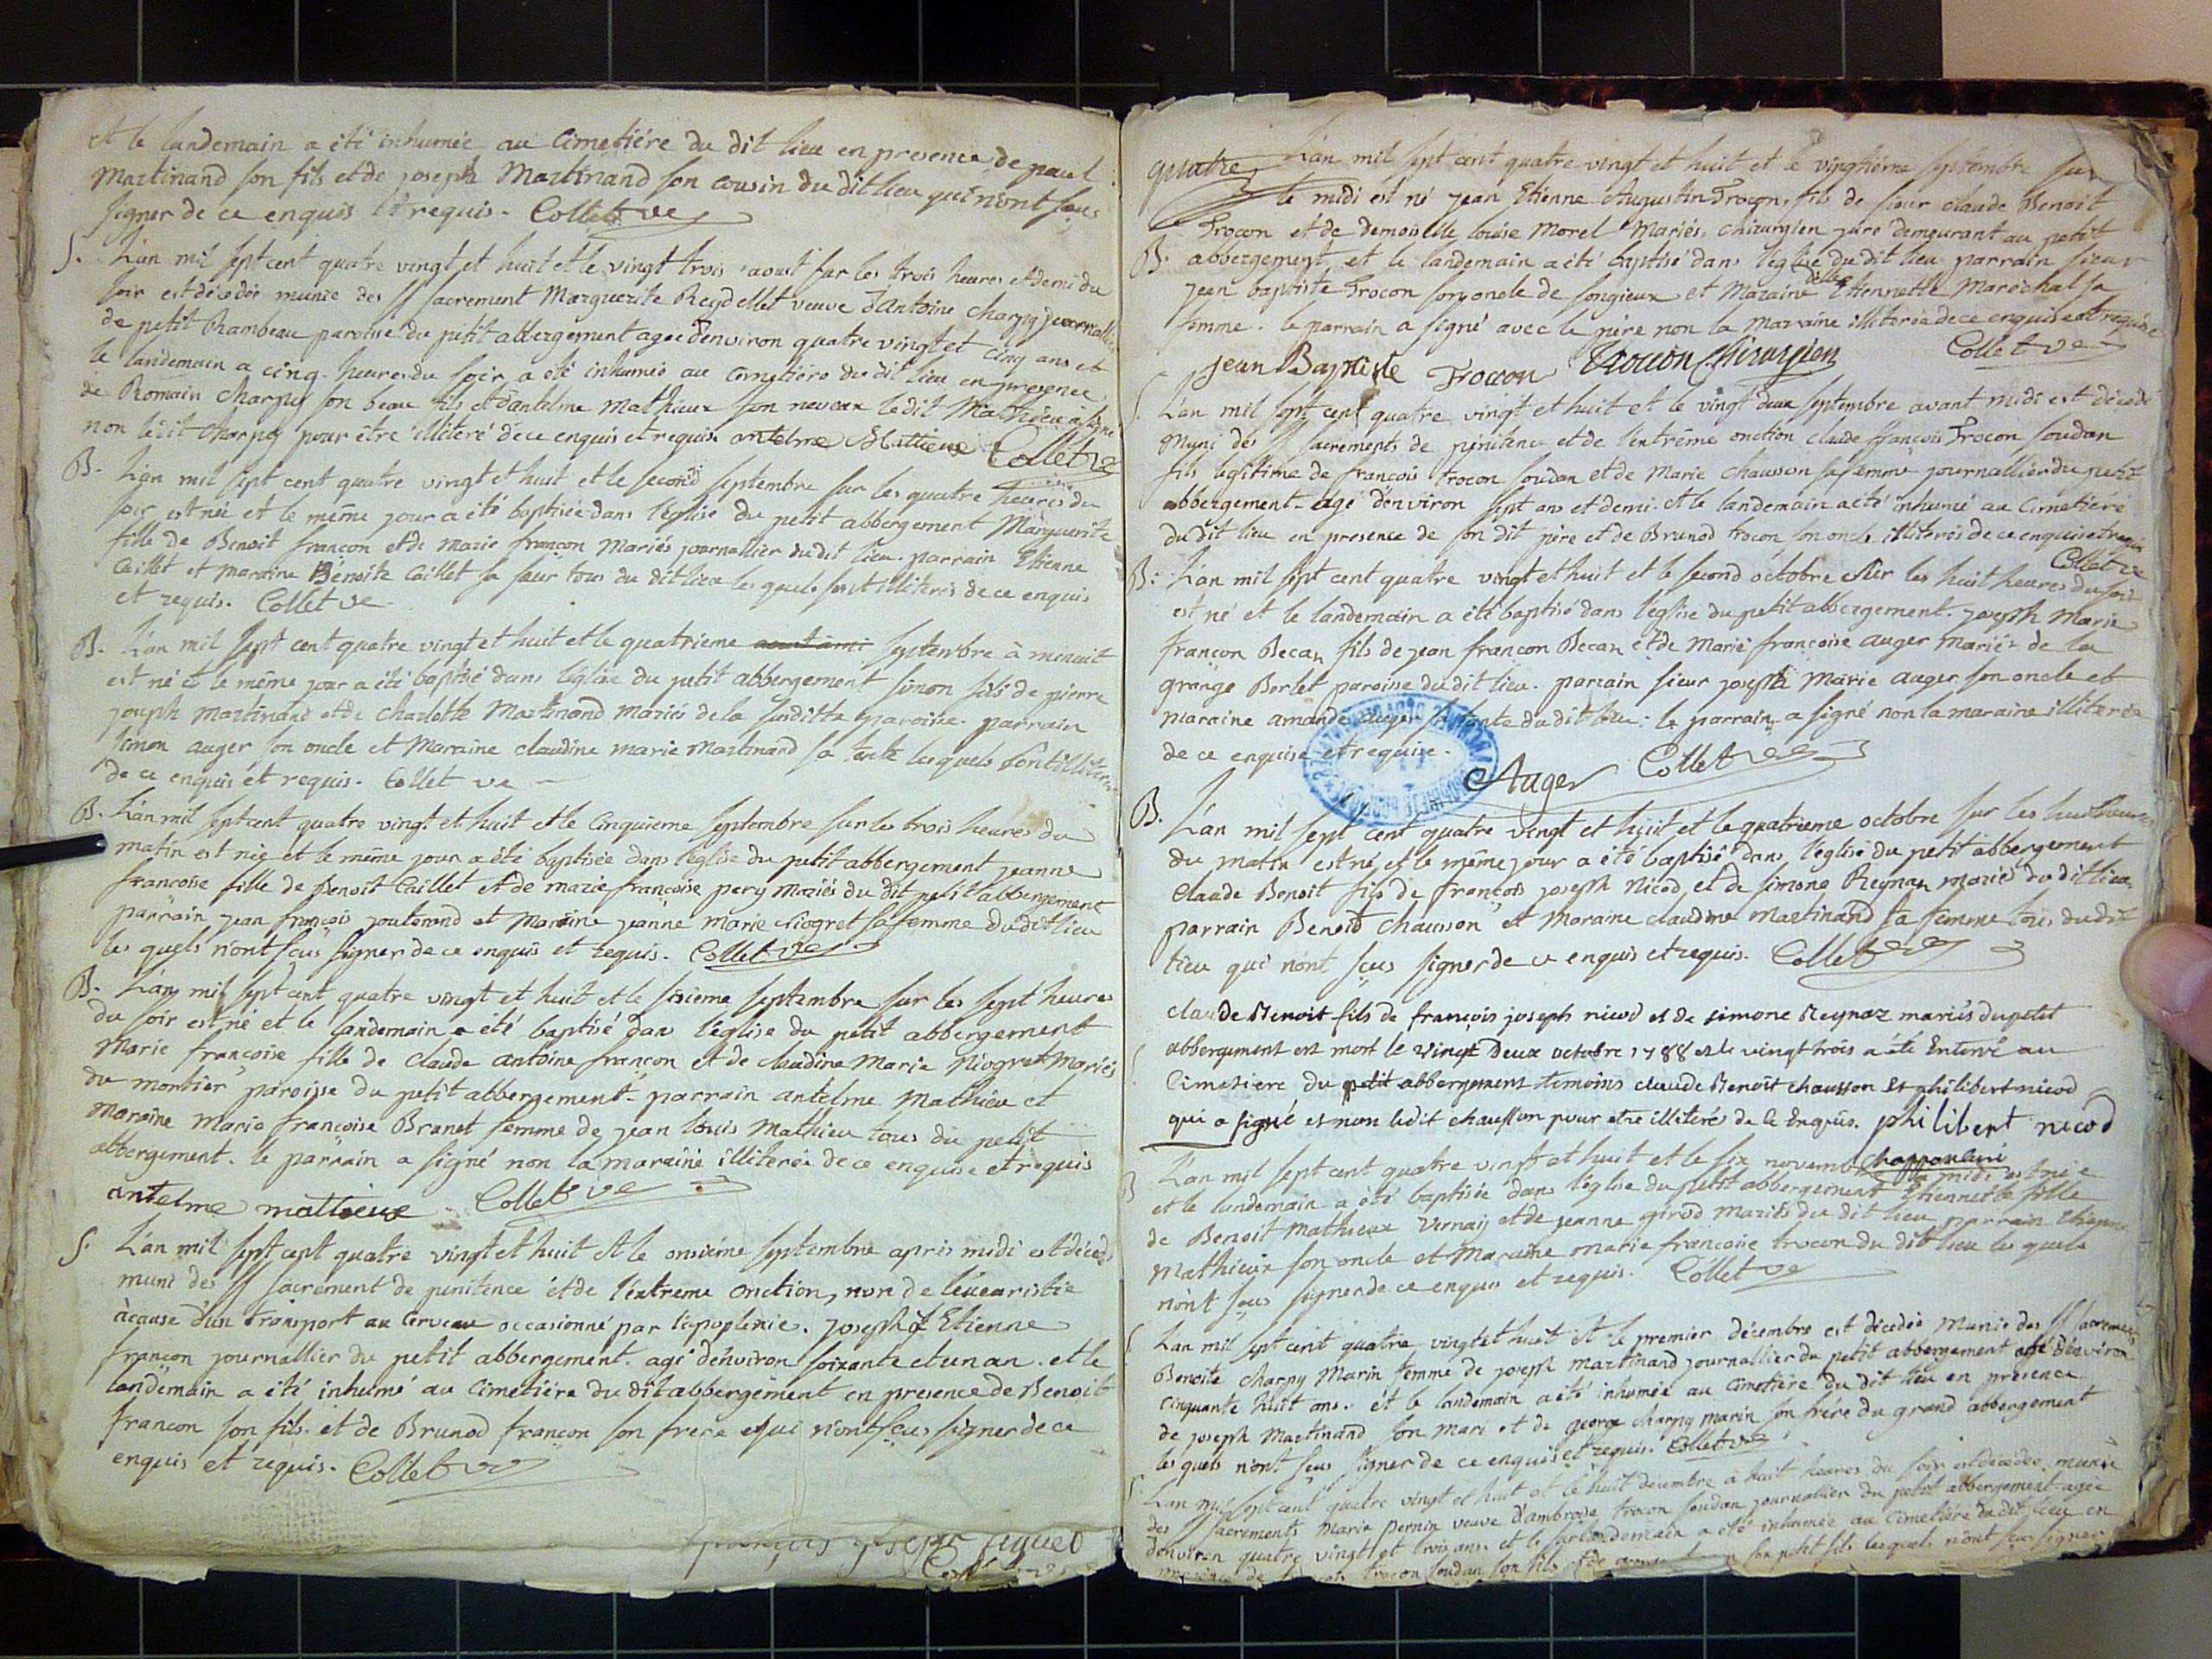 et le landemain a été inhumée au Cimetiére du dit lieu en presence de paul
Martinand son fils et de joseph Martinand son cousin du dit lieu qui n'ont sçus
signer de ce enquis et requis. Collet ve
S. L'an mil sept cent quatre vingt et huit et le vingt trois aoust sur les trois heures et demi du
soir est décedée munie des SS sacrement Marguerite Reydellet veuve d'Antoine charpy journallier
de petit Rambeau paroisse du petit abbergement agée d'environ quatre vingt et cinq ans et
le landemain a cinq heures du soir a été inhumée au Cimetiére du dit lieu en presence
de Romain charpy son beau fils et d'antelme Mathieux son neveux le dit Mathieu a signé
non le dit charpy pour être illiteré de ce enquis et requis. antelme Mattieux Collet ve
B. L'an mil sept cent quatre vingt et huit et le second septembre sur les quatre heures du
soir est née et le même jour a été baptisée dans l'église du petit abbergement Marguerite
fille de Benoit françon et de marie françon Mariés journallier du dit lieu. parrain Etienne
Caillet et maraine Bénoite Caillet sa sœur tous du dit lieu les quels sont illiterés de ce enquis
et requis. Collet ve
B. L'an mil sept cent quatre vingt et huit et le quatrieme septembre à minuit
est né et le même jour a été baptisé dans l'église du petit abbergement simon fils de pierre
joseph Martinand et de charlotte Martinand mariés de la susditte paroisse. parrain
simon auger son oncle et Maraine claudine marie Martinand sa tante lesquels sont illiterés
de ce enquis et requis. Collet ve
B. L'an mil sept cent quatre vingt et huit et le Cinquieme septembre sur les trois heures du
matin est née et le même jour a été baptisée dans l'église du petit abbergement jeanne
francoise fille de Benoit Caillet et de marie françoise pery mariés du dit petit abbergement
parrain jean françois jouterand et Maraine jeanne marie Niogret sa femme du dit lieu
les quels n'ont sçus signer de ce enquis et requis. Collet ve
B. L'an mil sept cent quatre vingt et huit et le sixieme septembre sur les sept heures
du soir est né et le landemain a été baptisé dans l'église du petit abbergement
Marie françoise fille de claude antoine françon et de claudine Marie Niogret Mariés
du montier paroisse du petit abbergement. parrain antelme Mathieu et
maraine Marie françoise Brunet femme de jean louis Mathieu tous du petit
abbergement. le parrain a signé non la maraine illiterée de ce enquise et requis
antelme mattieux. Collet ve
S. L'an mil sept cent quatre vingt et huit et le onsiéme septembre apris midi est décedé
muni des SS sacrement de penitence et de l'extreme onction, non de l'eucaristie
à cause d'un transport au Cerveau occasionné par l'apoplexie. joseph Etienne
françon journallier du petit abbergement. agé d'environ soixante et un an. et le
landemain a été inhumé au Cimetiére du dit abbergement en presence de Benoit
françon son fils. et de Brunod françon son frere qui n'ont sçus signer de ce
enquis et requis. Collet ve
françois joseph
quatre L'an mil sept cent quatre vingt et huit et le vingtiéme septembre sur
le midi est né jean Etienne Augustin Trocon, fils de sieur claude Benoit
Trocon et de demoiselle louise Morel Mariés, chirurgien juré demeurant au petit
B. abbergement, et le landemain a été baptisé dans l'église du dit lieu parrain sieur
jean baptiste Trocon son oncle de songieux et Maraine dlle Etiennette Maréchal sa
femme. le parrain a signé avec le père non la Maraine illiterée de ce enquise et requise
jean Baptiste Trocon Trocon Chirurgien Collet ve
S. L'an mil sept cent quatre vingt et huit et le vingt deux septembre avant midi est décedé
muni des SS sacrements de pénitence et de l'extrême onction claude françois Trocon soudan
fils légitime de françois trocon soudan et de Marie chausson sa femme journallier du petit
abbergement agé d'environ sept ans et demi. et le landemain a été inhumé au Cimetiére
du dit lieu en presence de son dit pére et de Brunod trocon son oncle illiterés de ce enquis et requis
Collet ve
B. L'an mil sept cent quatre vingt et huit et le second octobre sur les huit heures du soir
est né et le landemain a été baptisé dans l'église du petit abbergement. joseph Marie
françon Becan fils de jean françon Becan et de Marie françoise auger mariés de la
grange Borlet paroisse du dit lieu. parrain sieur joseph marie auger son oncle et
maraine amande auger sa tante du dit lieu: le parrain a signé non la maraine illiterée
de ce enquise et requise.
Auger Collet ve
B. L'an mil sept cent quatre vingt et huit et le quatrieme octobre sur les huit heures
du matin est né et le même jour a été baptisé dans l'église du petit abbergement
Claude Benoit fils de françois joseph Nicod et de simone Reynaz mariés du dit lieu
parrain Benoid chausson et Maraine claudine Martinand sa femme tous du dit
lieu qui n'ont sçus signer de ce enquis et requis. Collet ve
claude Benoit fils de françois joseph nicod et de simone Reynaz mariés du petit
abbergement est mort le vingt deux octobre 1788 et le vingt trois a été Enterré au
Cimetiere du petit abbergement temoins claude Benoit chausson et philibert nicod
qui a signé et non ledit chausson pour etre illiterés de ce Enquis. philibert nicod
B L'an mil sept cent quatre vingt et huit et le six novembre midi est née
et le landemain a été baptisée dans l'église du petit abbergement Etiennette fille
de Benoit Mathieux Vernaij et de jeanne girod Mariés du dit lieu parrain Etienne
Mathieux son oncle et Maraine marie francoise trocon du dit lieu les quels
n'ont sçus signer de ce enquis et requis. Collet ve
S L'an mil sept cent quatre vingt et huit et le premier décembre est décedée Munie des SS sacrements
Benoite charpy Marin femme de joseph martinand journallier du petit abbergement agé d'environ
cinquante huit ans. et le landemain a été inhumée au Cimetiére du dit lieu en presence
de joseph Martinand son mari et de george charpy marin son frére du grand abbergement
les quels n'ont sçus signer de ce enquis et requis. Collet ve
S. L'an mil sept cent quatre vingt et huit et le huit decembre à huit heures du soir est décedée munie
des SS sacrements Marie pernix veuve d'ambroise trocon soudan journallier du petit abbergement agée
d'environ quatre vingt et trois ans et le surlandemain a été inhumée au Cimetiére du dit lieu en
presence de trocon soudan son fils et de son petit fils lesquels n'ont sçus signer